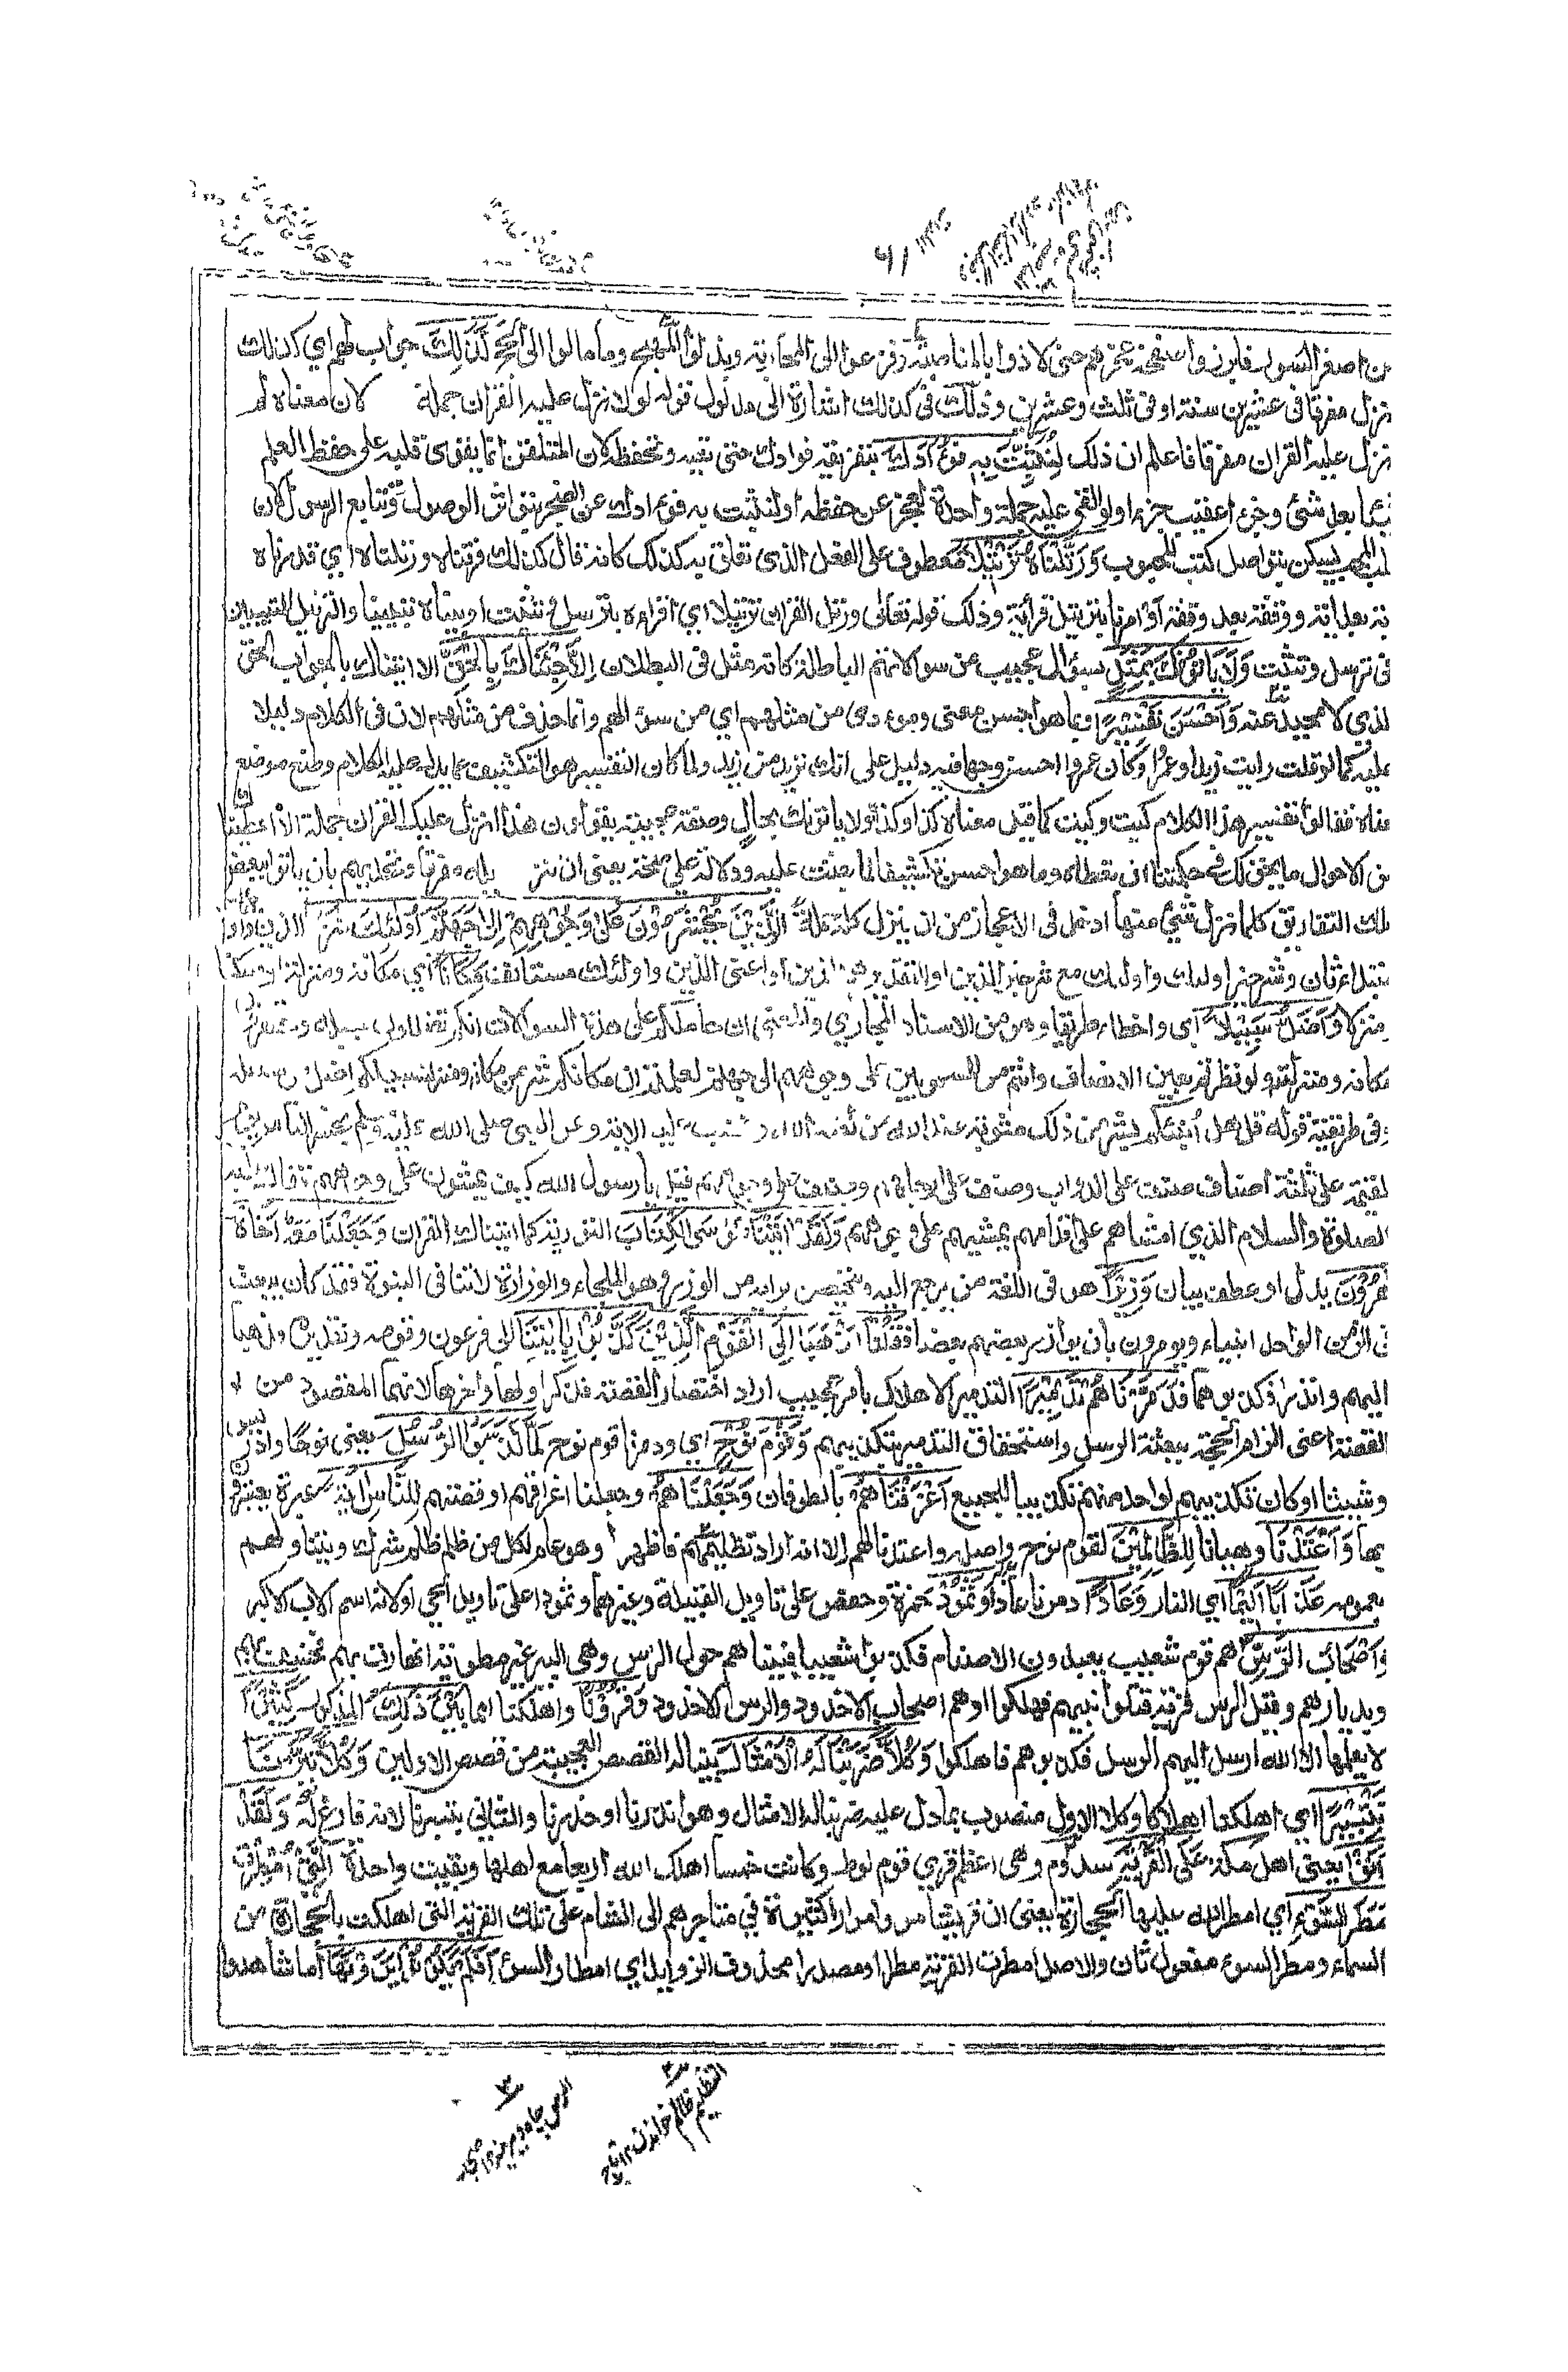 من اصغر السور فابرزوا صفحة عجزهم حتى لاذوا بالمناصبة وفزعوا الى المحاربة وبذلوا المهج وما مالوا الى الحجج كَذَٰلِكَ جواب لهم اي كذلك
نزل مفرقا فى عشرين سنة او فى ثلث وعشرين وذلك فى كذلك اشارة الى مدلول قوله لولا نزل عليه القران جملة لان معناه لم
نزل عليه القران مفرقا فاعلم ان ذلك لِنُثَبِّتَ بِهٖ فُؤَادَكَ بتفريقه فوادك حتى تعيه وتحفظه لان المتلقن انما يقوى قلبه على حفظ العلم
شيئا بعد شئ وجزء عقيب جزء ولو القي عليه جملة واحدة لعجز عن حفظه او لنثبت به فوادك عن الضجر بتواتر الوصول وتتابع الرسول لان
قلب المحب يسكن بتواصل كتب المحبوب وَرَتَّلْنَاهُ تَرْتِيْلًا معطوف على الفعل الذى تعلق به كذلك كانه قال كذلك فرقناه ورتلناه اي قدرناه
اية بعد اية ووقفة بعد وقفة او امرنا بترتيل قرأته وذلك قوله تعالى ورتل القران ترتيلا اي اقراه بترسل وتثبت او بيناه تبيينا والترتيل التبيين
فى ترسل وتثبت وَلَا يَأْتُوْنَكَ بِمَثَلٍ بسؤال عجيب من سوالاتهم الباطلة كانه مثل فى البطلان اِلَّا جِئْنَاكَ بِالْحَقِّ الا اتيناك بالجواب الحق
الذي لا محيد عنه وَاَحْسَنَ تَفْسِيْرًا وبما هو احسن معنى ومؤدى من مثلهم اي من سؤالهم وانما حذف من مثلهم لان فى الكلام دليلا
عليه كما لو قلت رايت زيدا وعمرا وكان عمرو احسن وجها فيه دليل على انك تريد من زيد ولما كان التفسير هو التكشيف عما يدل عليه الكلام وضع موضع
معناه فقالوا تفسير هذا الكلام كيت وكيت كما قيل معناه كذا وكذا او لا ياتونك بحال وصفة عجيبة يقولون هلا انزل عليك القران جملة الا اعطيناك
من الاحوال ما يحق لك فى حكمتنا ان تعطاه وما هو احسن تكشيفا لما بعثت عليه ودلالة على صحته يعنى ان تنزيله مفرقا وتحديهم بان ياتوا ببعض
تلك التفاريق كلما نزل شئ منها ادخل فى الاعجاز من ان ينزل كله جملة اَلَّذِيْنَ يُحْشَرُوْنَ عَلٰى وُجُوْهِهِمْ اِلٰى جَهَنَّمَ اُولٰئِكَ شَرٌّ الذين مبتدا
مبتدا ثان وشر خبر اولئك واولئك مع شر خبر الذين او التقدير هم الذين او اعنى الذين واولئك مستانف مَكَانًا اي مكانة ومنزلة او مسكنا
ومنزلا وَاَضَلُّ سَبِيْلًا اي واخطا طريقا وهو من الاسناد المجازي والمعنى ان حاملكم على هذه السوالات انكم تضللون سبيله وتحتقرون
مكانه ومنزلته ولو نظرتم بعين الانصاف وانتم من المسحوبين على وجوههم الى جهنم لعلمتم ان مكانكم شر من مكانه وسبيلكم اضل من سبيله
وفى طريقته قوله قل هل انبئكم بشر من ذلك مثوبة عند الله من لعنه الله وغضب عليه الاية وعن النبي صلى الله عليه وسلم يحشر الناس يوم
القيمة على ثلثة اصناف صنف على الدواب وصنف على ارجلهم وصنف على وجوههم قيل يا رسول الله كيف يمشون على وجوههم فقال عليه
الصلوة والسلام الذي امشاهم على اقدامهم يمشيهم على وجوههم وَلَقَدْ اٰتَيْنَا مُوْسَى الْكِتَابَ التورية كما اتيناك القران وَجَعَلْنَا مَعَهٗ اَخَاهُ
هٰرُوْنَ بدل او عطف بيان وَزِيْرًا هو فى اللغة من يرجع اليه ويتحصن برايه من الوزر وهو الملجاء والوزارة لا تنافى النبوة فقد كان يبعث
فى الزمن الواحد انبياء ويومرون بان يوازر بعضهم بعضا فَقُلْنَا اذْهَبَا اِلَى الْقَوْمِ الَّذِيْنَ كَذَّبُوْا بِاٰيٰتِنَا الى فرعون وقومه وتقديره فذهبا
اليهم وانذرا فكذبوهما فَدَمَّرْنَاهُمْ تَدْمِيْرًا التدمير الاهلاك بامر عجيب اراد اختصار القصة فذكر اولها واخرها لانهما المقصود من
القصة اعنى الزام الحجة ببعثة الرسل واستحقاق التدمير بتكذيبهم وَقَوْمَ نُوْحٍ اي ودمرنا قوم نوح لَمَّا كَذَّبُوا الرُّسُلَ يعنى نوحا وادريس
وشيثا او كان تكذيبهم لواحد منهم تكذيبا للجميع اَغْرَقْنَاهُمْ بالطوفان وَجَعَلْنَاهُمْ وجعلنا اغراقهم او قصتهم لِلنَّاسِ اٰيَةً عبرة يعتبرون
بها وَاَعْتَدْنَا وهيانا لِلظَّالِمِيْنَ لقوم نوح واصله واعتدنا لهم الا انه اراد تظليمهم فاظهر او هو عام لكل من ظلم ظلم شرك ويتناولهم
بعمومه عَذَابًا اَلِيْمًا اي النار وَعَادًا دمرنا عادا وَثَمُوْدَ حمزة وحفص على تاويل القبيلة وغيرهما وثمودا على تاويل الحي او لانه اسم الاب الاكبر
وَاَصْحَابَ الرَّسِّ هم قوم شعيب يعبدون الاصنام فكذبوا شعيبا فبينا هم حول الرس وهى البير غير مطوية انهارت بهم فخسف بهم
وبديارهم وقيل الرس قرية قتلوا نبيهم فهلكوا او هم اصحاب الاخدود والرس الاخدود وَقُرُوْنًا واهلكنا امما بَيْنَ ذٰلِكَ المذكور كَثِيْرًا
لا يعلمها الا الله ارسل اليهم الرسل فكذبوهم فاهلكوا وَكُلًّا ضَرَبْنَا لَهُ الْاَمْثَالَ بينا له القصص العجيبة من قصص الاولين وَكُلًّا تَبَّرْنَا
تَتْبِيْرًا اي اهلكنا اهلاكا وكلا الاول منصوب بما دل عليه ضربنا له الامثال وهو انذرنا او حذرنا والثانى بتبرنا لانه فارغ له وَلَقَدْ
اَتَوْا يعنى اهل مكة عَلَى الْقَرْيَةِ سدوم وهى اعظم قري قوم لوط وكانت خمسا اهلك الله اربعا مع اهلها وبقيت واحدة الَّتِيْ اُمْطِرَتْ
مَطَرَ السَّوْءِ اي امطر الله عليها الحجارة يعنى ان قريشا مروا مرارا كثيرة في متاجرهم الى الشام على تلك القرية التى اهلكت بالحجارة من
السماء ومطر السوء مفعول ثان والاصل امطرت القرية مطرا او مصدر محذوف الزوايد اي امطار السوء اَفَلَمْ يَكُوْنُوْا يَرَوْنَهَا اما شاهدوا